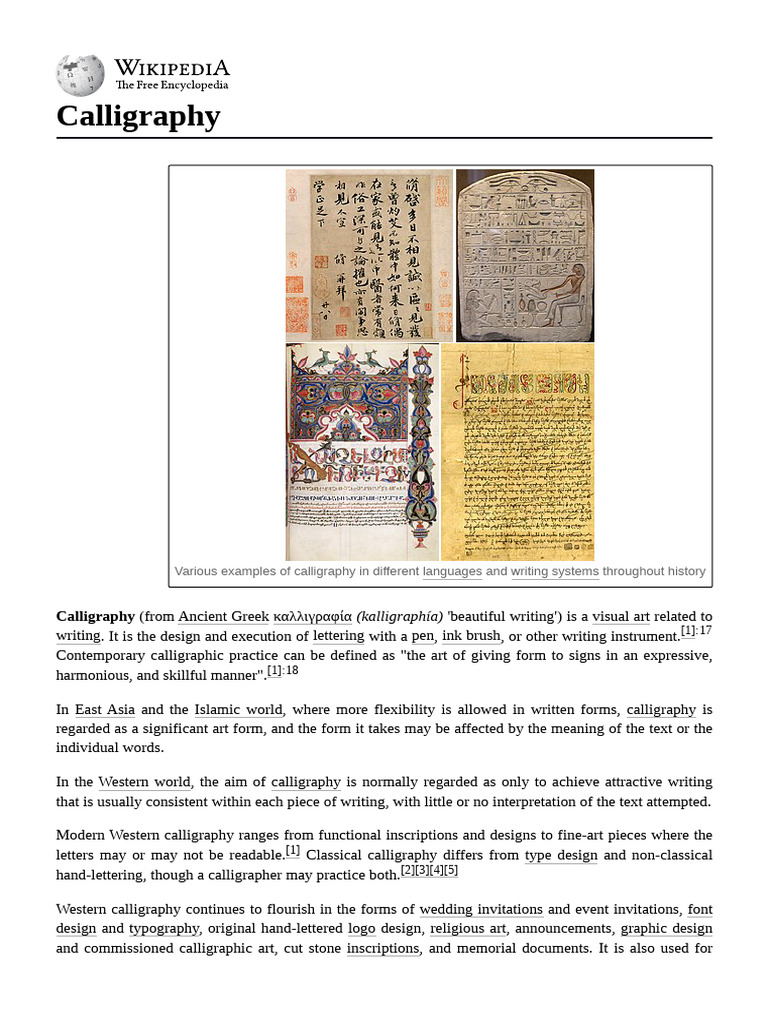 WIKIPEDIA
The Free Encyclopedia
Calligraphy
Various examples of calligraphy in different languages and writing systems throughout history
Calligraphy (from Ancient Greek καλλιγραφία (kalligraphía) 'beautiful writing') is a visual art related to
writing. It is the design and execution of lettering with a pen, ink brush, or other writing instrument.[1]:17
Contemporary calligraphic practice can be defined as "the art of giving form to signs in an expressive,
harmonious, and skillful manner".[1]:18
In East Asia and the Islamic world, where more flexibility is allowed in written forms, calligraphy is
regarded as a significant art form, and the form it takes may be affected by the meaning of the text or the
individual words.
In the Western world, the aim of calligraphy is normally regarded as only to achieve attractive writing
that is usually consistent within each piece of writing, with little or no interpretation of the text attempted.
Modern Western calligraphy ranges from functional inscriptions and designs to fine-art pieces where the
letters may or may not be readable.[1] Classical calligraphy differs from type design and non-classical
hand-lettering, though a calligrapher may practice both.[2][3][4][5]
Western calligraphy continues to flourish in the forms of wedding invitations and event invitations, font
design and typography, original hand-lettered logo design, religious art, announcements, graphic design
and commissioned calligraphic art, cut stone inscriptions, and memorial documents. It is also used for